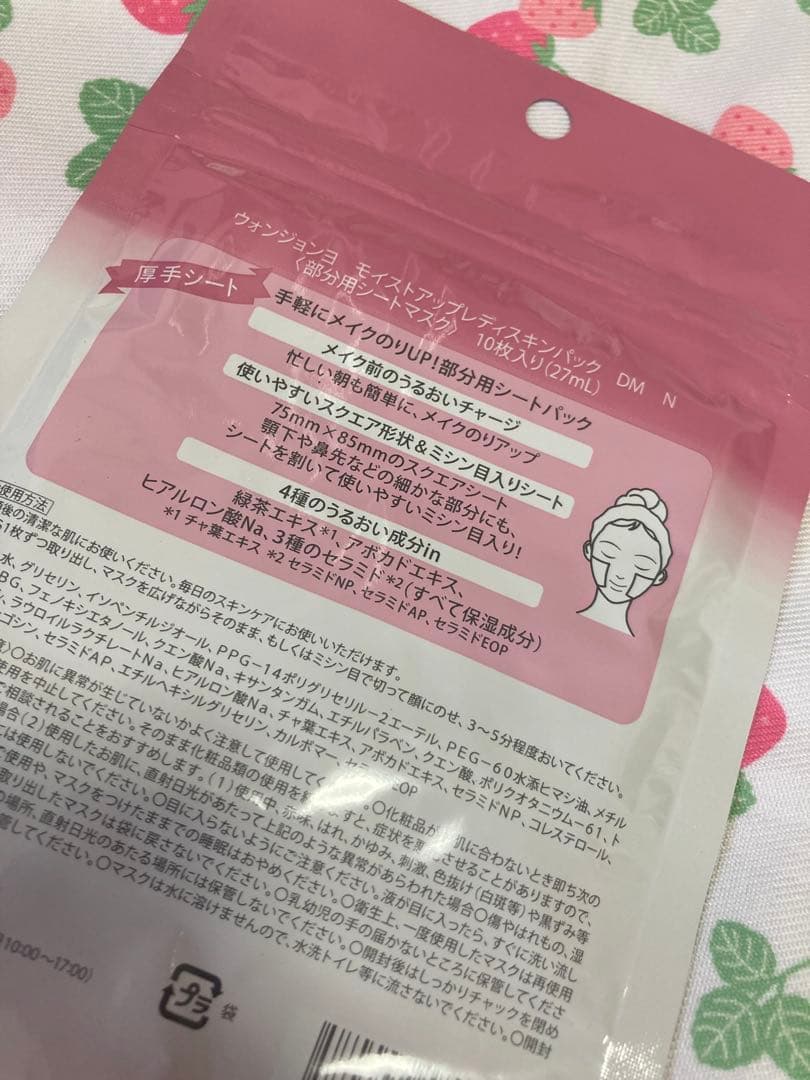 ウォンジョンヨ モイストアップレディスキンパック DM N
〈部分用シートマスク〉 10枚入り(27mL)
厚手シート
手軽にメイクのりUP!部分用シートパック
メイク前のうるおいチャージ
忙しい朝も簡単に、メイクのりアップ
使いやすいスクエア形状&ミシン目入りシート
75mm×85mmのスクエアシート
顎下や鼻先などの細かな部分にも、
シートを割いて使いやすいミシン目入り!
4種のうるおい成分in
緑茶エキス*1、アボカドエキス、
ヒアルロン酸Na、3種のセラミド*2(すべて保湿成分)
*1 チャ葉エキス *2 セラミドNP、セラミドAP、セラミドEOP
使用方法
後の清潔な肌にお使いください。毎日のスキンケアにお使いいただけます。
1枚ずつ取り出し、マスクを広げながらそのまま、もしくはミシン目で切って顔にのせ、3〜5分程度おいてください。
水、グリセリン、イソペンチルジオール、PPG-14ポリグリセリル-2エーテル、PEG-60水添ヒマシ油、メチル
BG、フェノキシエタノール、クエン酸Na、キサンタンガム、エチルパラベン、クエン酸、ポリクオタニウム-61、ト
ラウロイルラクチレートNa、ヒアルロン酸Na、チャ葉エキス、アボカドエキス、セラミドNP、コレステロール、
ゴシン、セラミドAP、エチルヘキシルグリセリン、カルボマー、セラミドEOP
〇お肌に異常が生じていないかよく注意して使用して 〇化粧品が 肌に合わないとき即ち次の
使用を中止してください。そのまま化粧品類の使用を続 ますと、症状を させることがありますので、
ご相談されることをおすすめします。(1)使用中、赤味、はれ、かゆみ、刺激、色抜け(白斑等)や黒ずみ等
場合(2)使用したお肌に、直射日光があたって上記のような異常があらわれた場合〇傷やはれもの、湿
は使用しないでください。〇目に入らないようにご注意ください。液が目に入ったら、すぐに洗い流し
使用や、マスクをつけたままでの睡眠はおやめください。〇衛生上、一度使用したマスクは再使用
取り出したマスクは袋に戻さないでください。〇乳幼児の手の届かないところに保管してくださ
場所、直射日光のあたる場所には保管しないでください。〇開封後はしっかりチャックを閉め
管してください。〇マスクは水に溶けませんので、水洗トイレ等に流さないでください。〇開封
10:00〜17:00)
プラ
袋